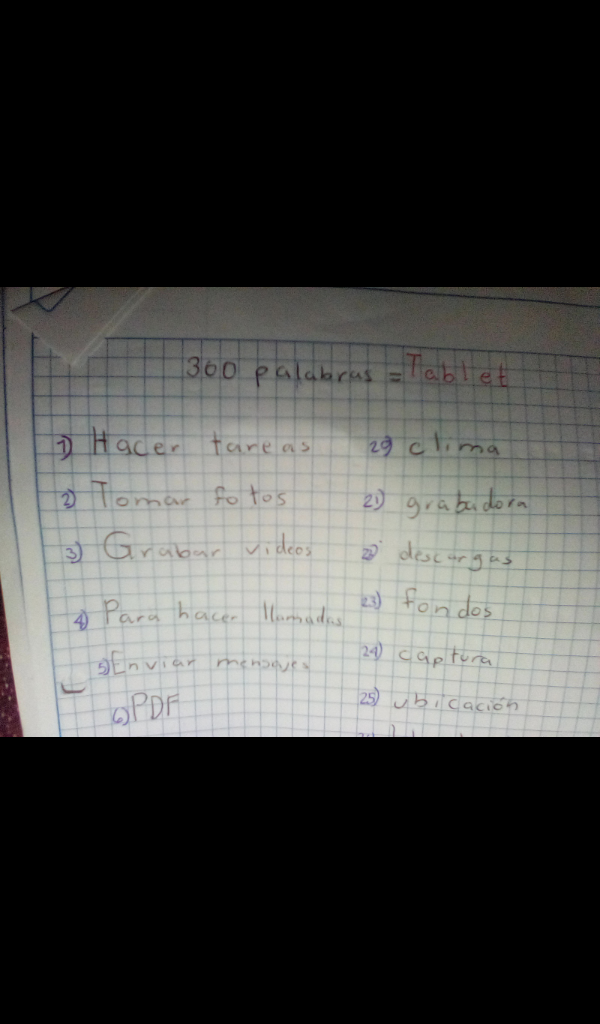 360 palabras = Tablet
1) Hacer tareas
2) Tomar fotos
3) Grabar videos
4) Para hacer llamadas
5) Enviar mensajes
6) PDF
29 clima
21) grabadora
22) descargas
23) fondos
24) captura
25) ubicación